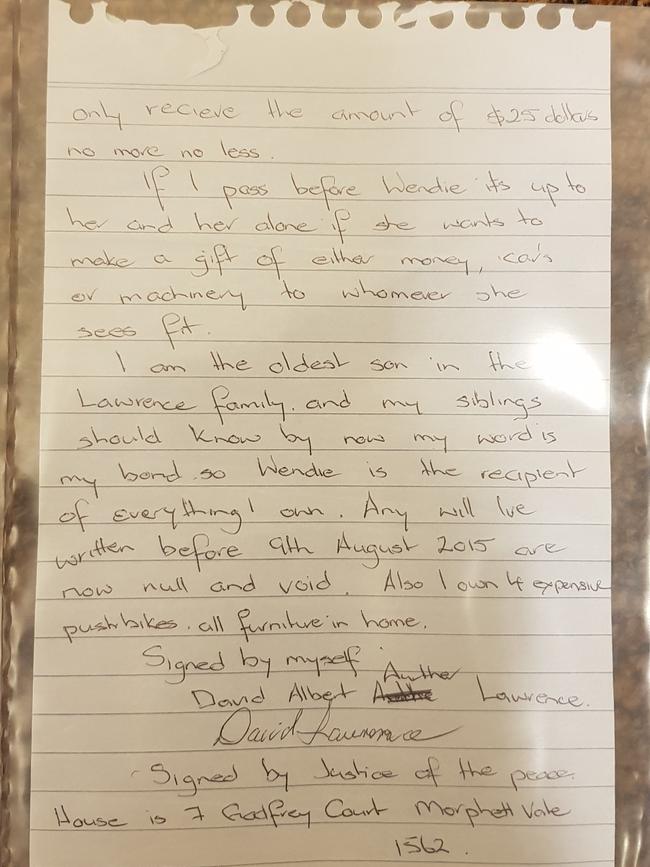 only recieve the amount of $25 dollars
no more no less.
If I pass before Wendie its up to
her and her alone if she wants to
make a gift of either money, car's
or machinery to whomever she
sees fit.
I am the oldest son in the
Lawrence family. and my siblings
should know by now my word is
my bond so Wendie is the recipient
of everything I own. Any will Ive
written before 9th August 2015 are
now null and void. Also I own 4 expensive
pushbikes. all furniture in home.
Signed by myself
David Albert Auther Lawrence.
David Lawrence
Signed by Justice of the peace.
House is 7 Godfrey Court Morphett Vale
1562.